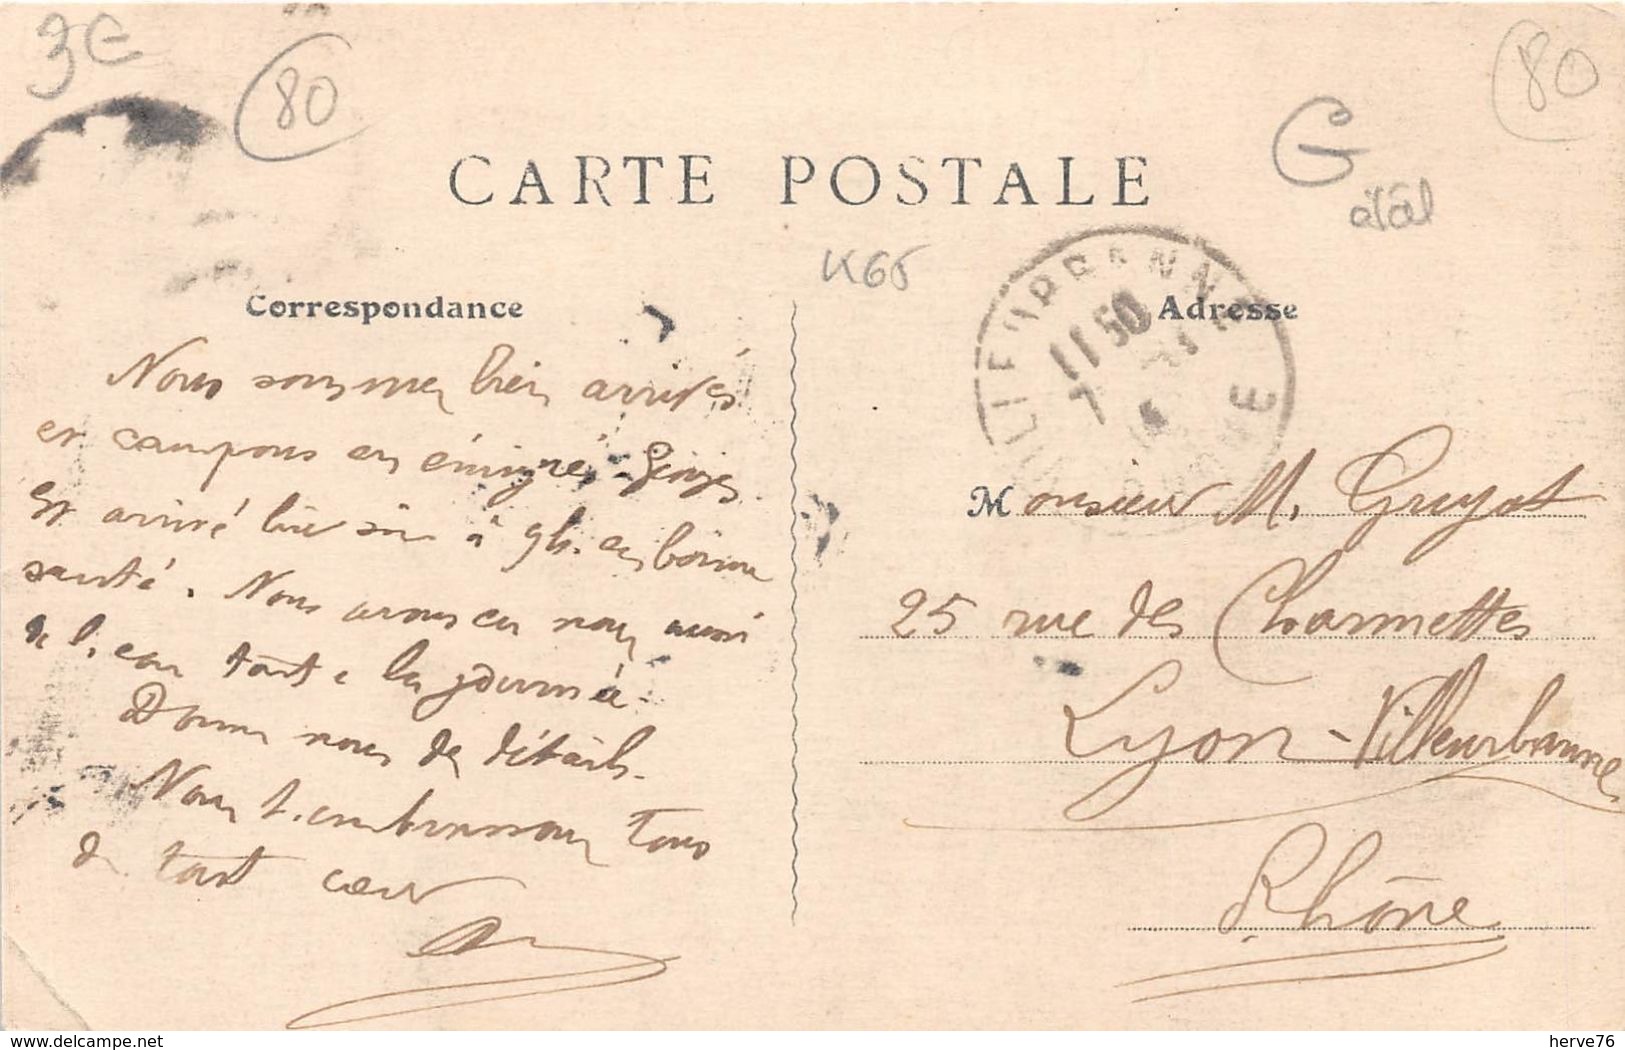 3€
80
80
G
étal
CARTE POSTALE
K65
Correspondance
Adresse
11 50
7
Nous sommes bien arrivés
et campons en émigrés. Georges
est arrivé hier soir à 9h. en bonne
santé. Nous avons eu nous aussi
de l'eau toute la journée.
Donne nous des détails.
Nous t'embrassons tous
de tout cœur
Monsieur M. Guyot
25 rue des Charmettes
Lyon-Villeurbanne
Rhône
www.delcampe.net
herve76